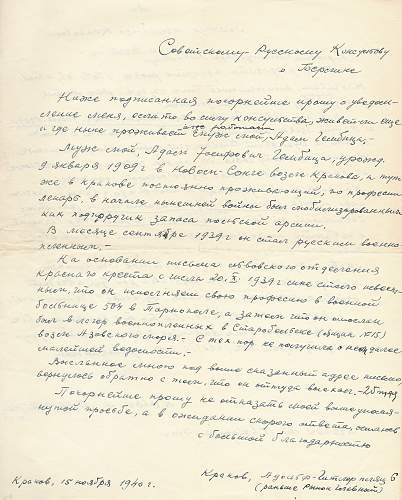 Советскому-Русскому Консульову
в Берлине
Ниже подписанная покорнейше прошу о уведом-
ление меня, если то во силу консульства, живет ли еще
и где ныне проживает або работает муж мой, Адам
Муж мой, Адам Іосифович урожд.
9 января 1909 г в Новом-Сонче возле Кракова, и тут
же в Кракове постоянно проживающий, по професии
лекарь, в начале нынешней войны был мобилизированный
как подпоручик запаса польской армии.
В месяце сентябре 1939 г он стал русским военно-
пленным,-
На основании письма львовского отделения
Красного Креста с числа 20.X 1939 г мне стало извест-
ным, что он исполняет свою професию в военной
больнице 504 в Тарнополе, а затем что он отослан
был в лагер военнопленных в Старобельске (ящик №15)
возле Азовского моря.- С тех пор не получила о нем далее
малейшей ведомости,-
Высланное мною под выше сказанный адрес письмо,
вернулось обратно с тем, что он оттуда выехал,-
Покорнейше прошу не отказать моей вышеуказан-
нупой просьбе, а в ожидании скорого ответа, остаюсь
с большой благодарностью
Краков, 6
(раньше Рынок)
Краков, 15 ноября 1940 г.